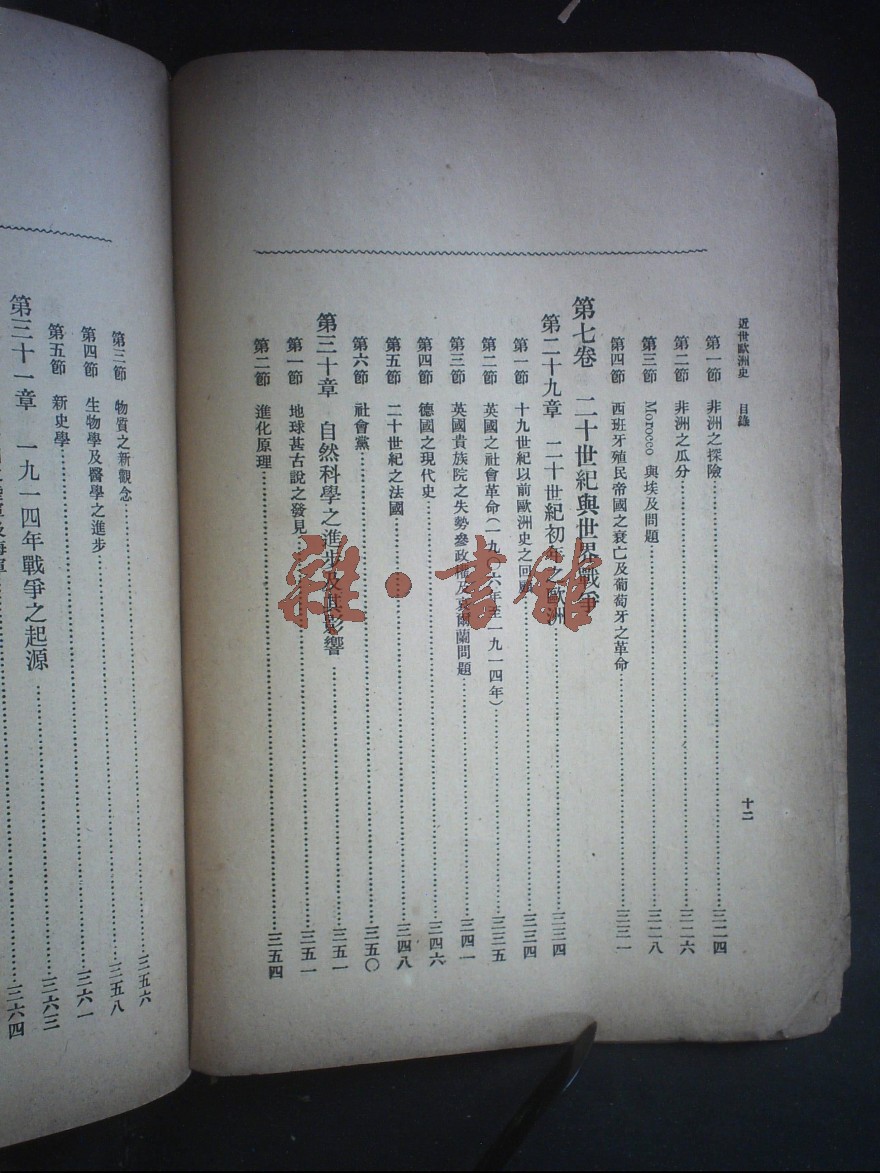 近世歐洲史　目錄　十二
第一節　非洲之探險……三二四
第二節　非洲之瓜分……三二六
第三節　Morocco 與埃及問題……三二八
第四節　西班牙殖民帝國之衰亡及葡萄牙之革命……三三一
第七卷　二十世紀與世界戰爭
第二十九章　二十世紀初年之歐洲……三三四
第一節　十九世紀以前歐洲史之回顧……三三四
第二節　英國之社會革命(一九〇六年至一九一四年)……三三五
第三節　英國貴族院之失勢參政權及哀爾蘭問題……三四一
第四節　德國之現代史……三四六
第五節　二十世紀之法國……三四八
第六節　社會黨……三五〇
第三十章　自然科學之進步及其影響……三五一
第一節　地球甚古說之發見……三五一
第二節　進化原理……三五四
第三節　物質之新觀念……三五六
第四節　生物學及醫學之進步……三五八
第五節　新史學……三六一
第三十一章　一九一四年戰爭之起源……三六三
及海軍……三六四
雜·書館